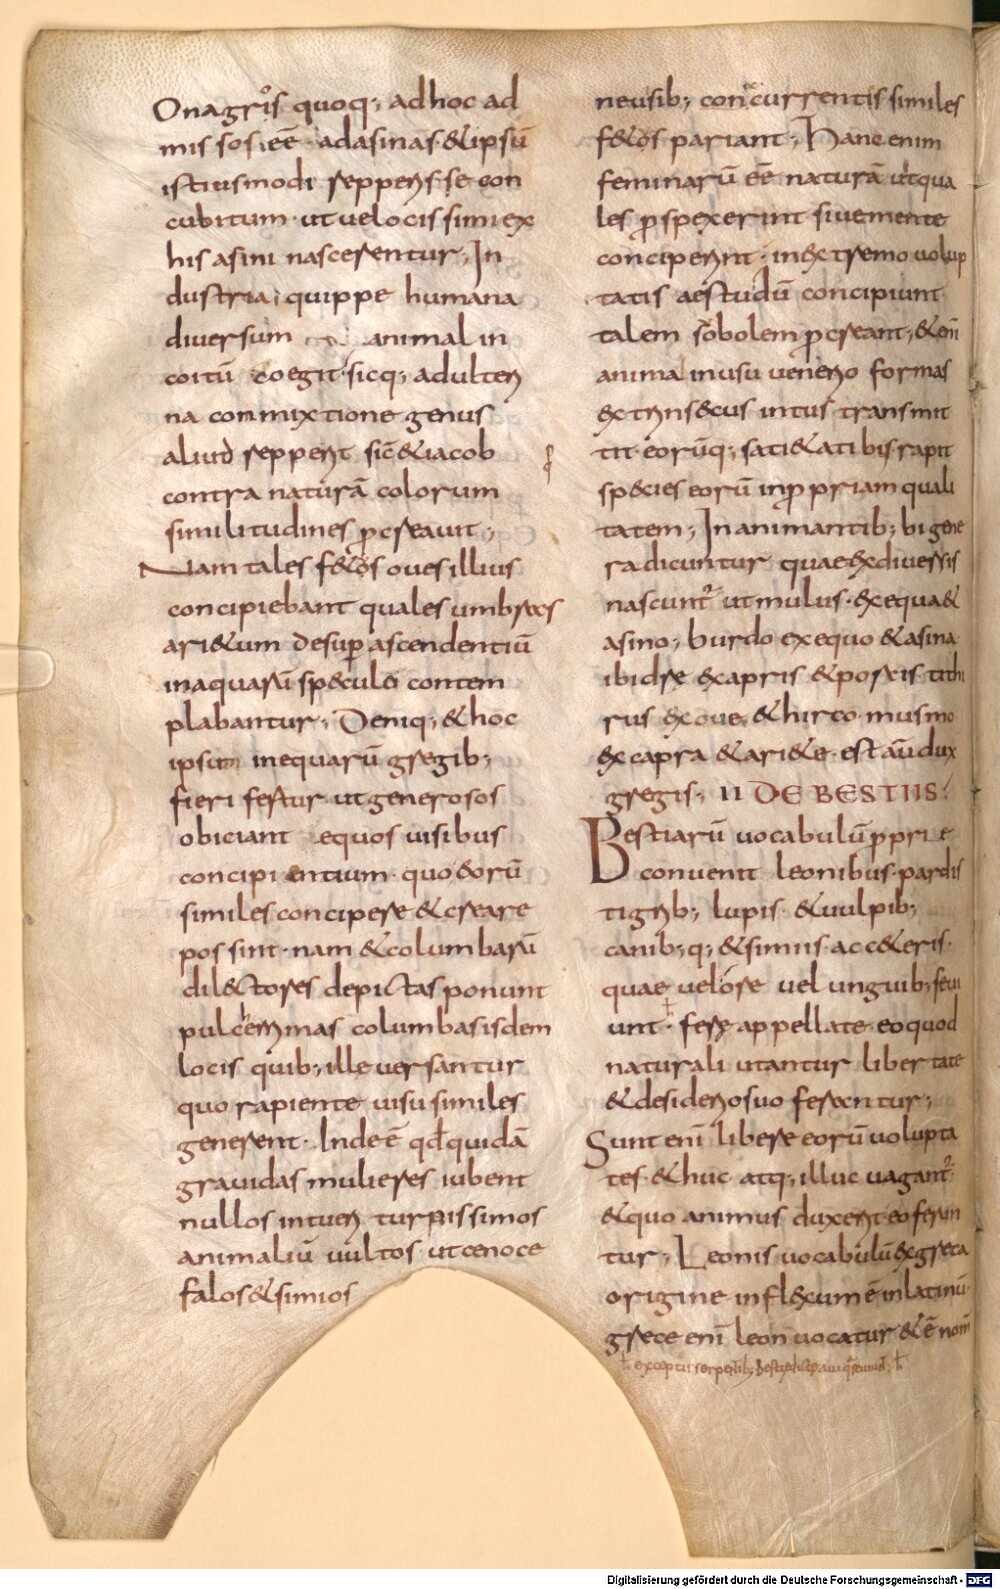 Onagros quoq; ad hoc ad
mis sos .eē. ad asinas. & ipsū
istiusmodi repperisse con
cubitum. ut uelocissimi ex
his asini nascerentur; In
dustria; quippe humana
diuersum animal in
coitū coegit. sicq; adulteri
na commixtione genus
aliud repperit sic̄ & iacob
contra naturā colorum
similitudines ꝓcreauit;
Nam tales fetos oues illius
concipiebant quales umbras
ari&um desuꝑ ascendentiū
in aquarū speculo contem
plabantur; Deniq; & hoc
ipsum in equarū gregib;
fieri fertur. ut generosos
obiciant equos uisibus
concipientium. quo eorū
similes concipere & creare
possint. nam & columbarū
dilectores depictas ponunt
pulcerrimas columbas isdem
locis quib; ille uersantur
quo rapiente uisu similes
generent. Inde ē qđ quidā
grauidas mulieres iubent
nullos intueri turpissimos
animaliū uultos. ut cenoce
falos & simios
neusib; concurrentis similes
f&os pariant; Hanc enim
feminarū eē naturā ut qua
les ꝓspexerint siue mente
conceperint. in extremo uolup
tatis aestu dū concipiunt
talem sobolem ꝓcreant; &eni
anima in usu venerio formas
extrinsecus intus transmit
tit. eorūq; satietati bis rapit
species eorū in ꝓpriam quali
tatem; In animantib; bigene
ra dicuntur quae ex diuersis
nascunt̄ ut mulus. ex equa &
asino; burdo ex equo & asina
ibidre ex capris & porcis. tithi
rus ex oue. & hirco. musmo
ex capra & ariete. est aū dux
gregis; II DE BESTIIS.
Bestiarū uocabulū ꝓprie
conuenit leonibus. pardis
tigrib; lupis. & uulpib;
canib;q; & simiis. ac c&eris.
quae uel ore uel unguib; seui
unt. fere appellate. eo quod
naturali utantur libertate
& desiderio suo ferantur;
Sunt eni libere eorū uolupta
tes. & huc atq; illuc uagant̄
& quo animus duxerit. eo ferun
tur; Leonis uocabulū ex greca
origine inflexum ē in latinū.
grece eni leon uocatur & ē nom
exceptis serpentib;